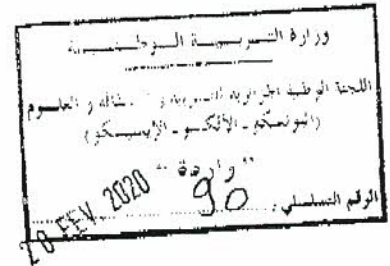 وزارة التربية الوطنية
اللجنة الوطنية الجزائرية للتربية و الثقافة و العلوم
(اليونسكو - الألكسو - الإيسيسكو)
" واردة "
20 FEV. 2020
الرقم التسلسلي: 90